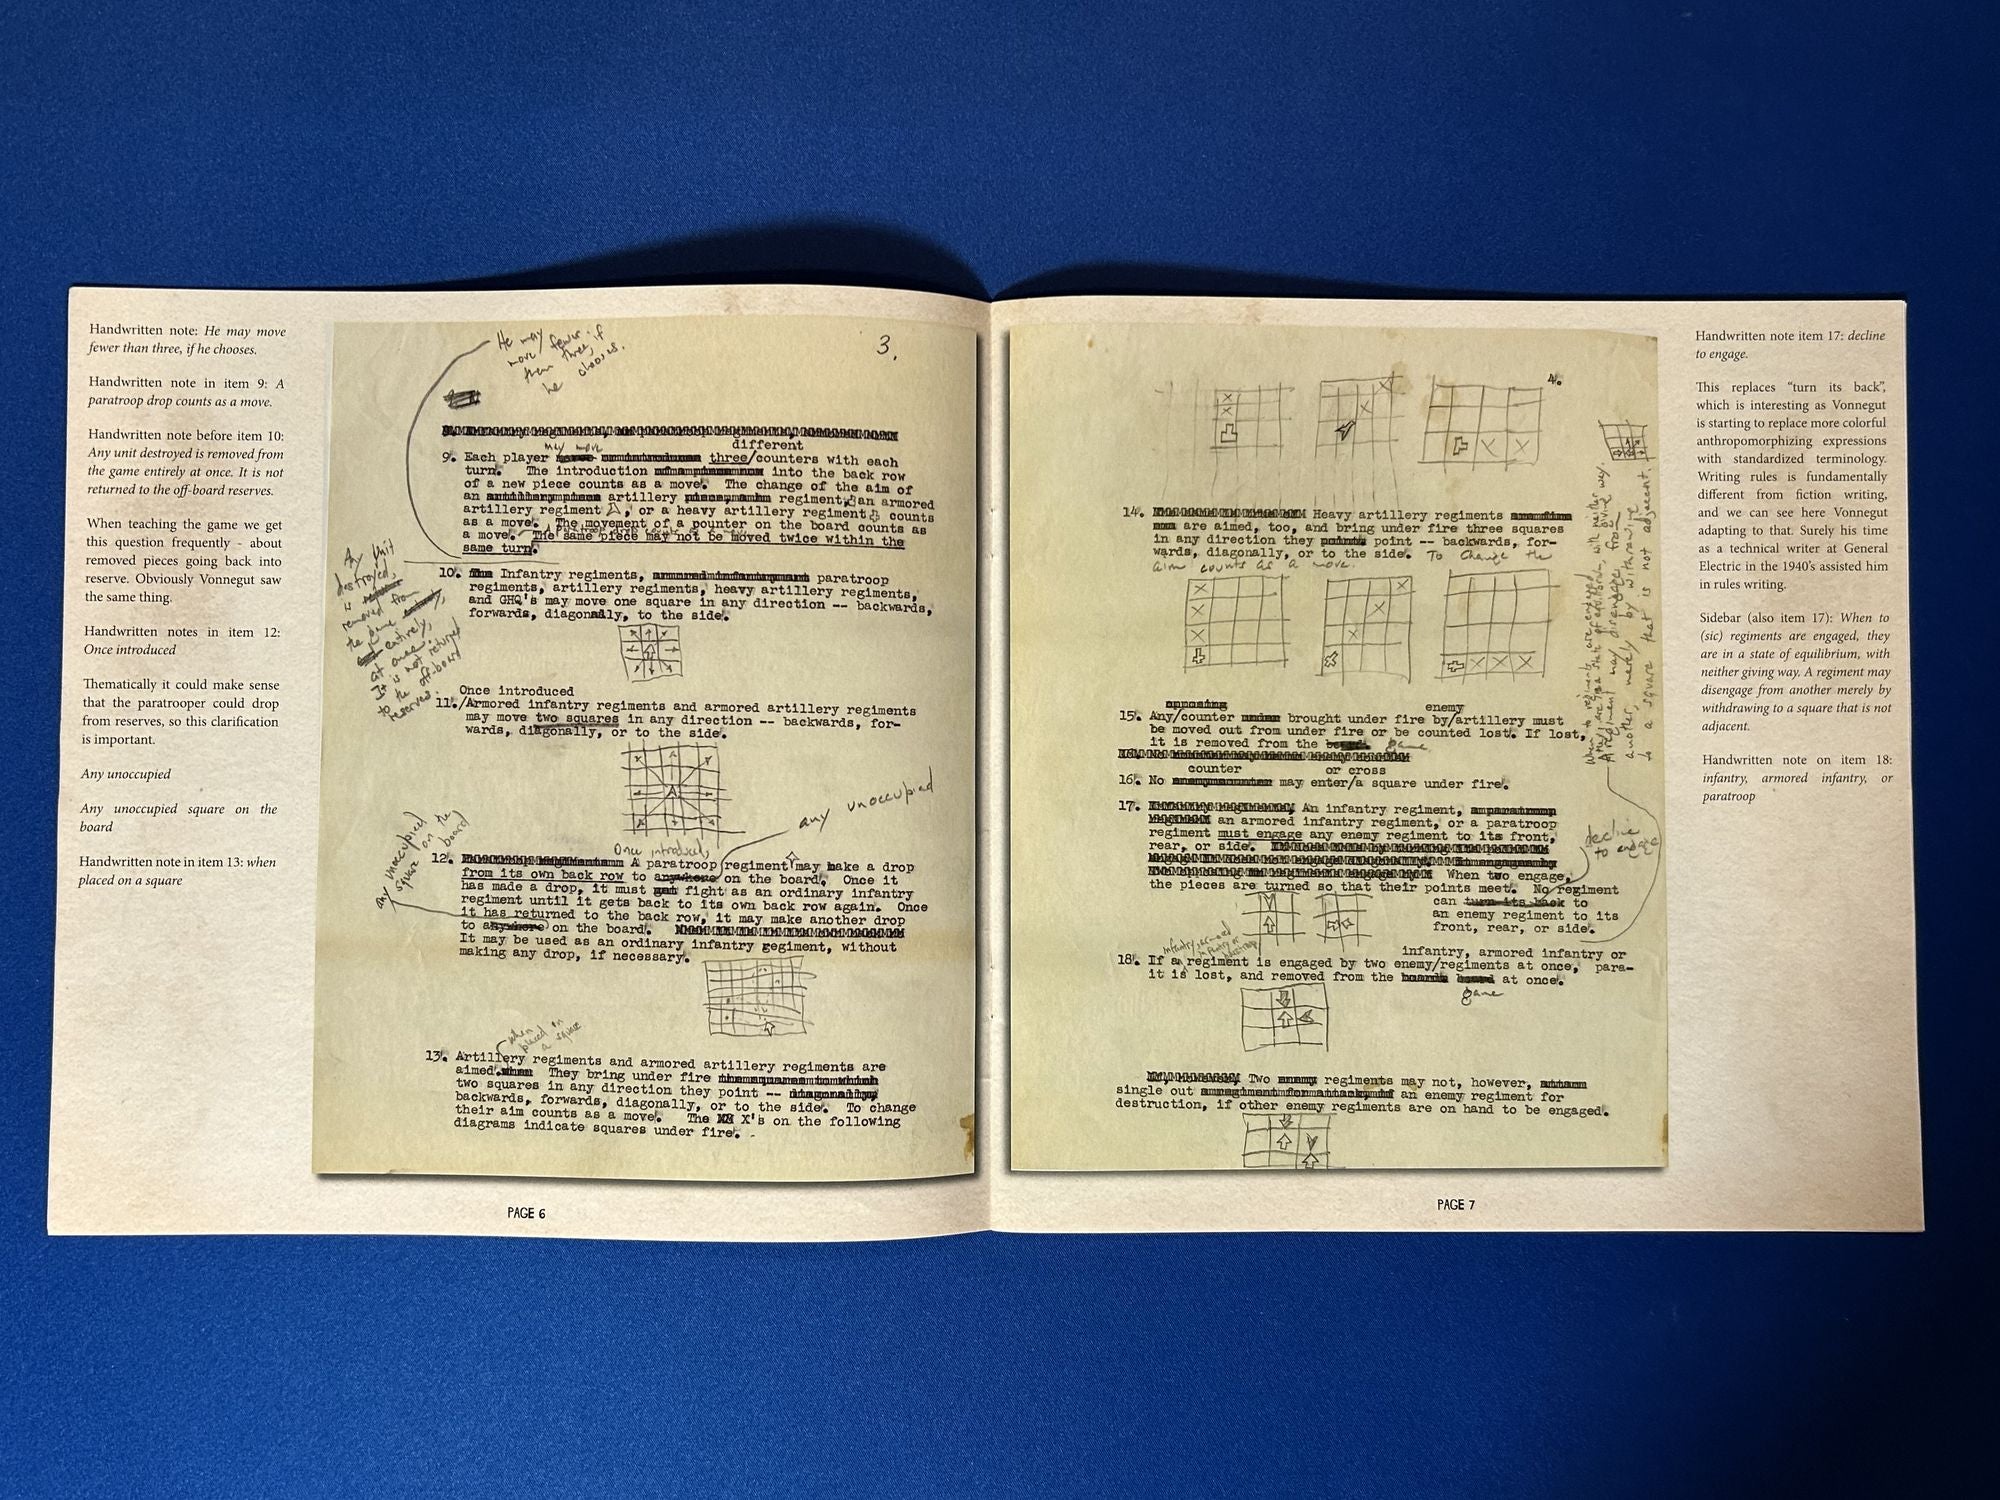 Handwritten note: He may move
fewer than three, if he chooses.
Handwritten note in item 9: A
paratroop drop counts as a move.
Handwritten note before item 10:
Any unit destroyed is removed from
the game entirely at once. It is not
returned to the off-board reserves.
When teaching the game we get
this question frequently - about
removed pieces going back into
reserve. Obviously Vonnegut saw
the same thing.
Handwritten notes in item 12:
Once introduced
Thematically it could make sense
that the paratrooper could drop
from reserves, so this clarification
is important.
Any unoccupied
Any unoccupied square on the
board
Handwritten note in item 13: when
placed on a square
He may
move fewer
than three, if
he chooses.
3.
different
may move
9. Each player three/counters with each
turn. The introduction into the back row
of a new piece counts as a move. The change of the aim of
an artillery regiment, an armored
artillery regiment, or a heavy artillery regiment counts
as a move. The movement of a pounter on the board counts as
a move. The same piece may not be moved twice within the
same turn.
Any unit
destroyed,
is
removed from
the game
entirely,
at once.
It is not returned
to the off-board
reserves.
10. Infantry regiments, paratroop
regiments, artillery regiments, heavy artillery regiments,
and GHQ's may move one square in any direction -- backwards,
forwards, diagonally, to the side.
Once introduced
11./Armored infantry regiments and armored artillery regiments
may move two squares in any direction -- backwards, for-
wards, diagonally, or to the side.
any unoccupied
any unoccupied
square on the
board
Once introduced,
12. A paratroop regiment may make a drop
from its own back row to anywhere on the board. Once it
has made a drop, it must fight as an ordinary infantry
regiment until it gets back to its own back row again. Once
it has returned to the back row, it may make another drop
to anywhere on the board.
It may be used as an ordinary infantry gegiment, without
making any drop, if necessary.
when
placed on
a square
13. Artillery regiments and armored artillery regiments are
aimed. They bring under fire the squares to which
two squares in any direction they point -- diagonally,
backwards, forwards, diagonally, or to the side. To change
their aim counts as a move. The X's on the following
diagrams indicate squares under fire.
PAGE 6
4.
14. Heavy artillery regiments
are aimed, too, and bring under fire three squares
in any direction they point -- backwards, for-
wards, diagonally, or to the side. To change the
aim counts as a move.
opposing enemy
15. Any/counter brought under fire by/artillery must
be moved out from under fire or be counted lost. If lost,
it is removed from the game
counter or cross
16. No may enter/a square under fire.
17. An infantry regiment,
an armored infantry regiment, or a paratroop
regiment must engage any enemy regiment to its front,
rear, or side.
When two engage,
the pieces are turned so that their points meet. No regiment
can turn its back to
an enemy regiment to its
front, rear, or side.
decline
to engage
When to regiments are engaged
they are in a state of equilibrium, with neither way
A regiment may disengage from giving
another, merely by withdrawing
to a square that is not adjacent.
infantry, armored
infantry or
paratroop
infantry, armored infantry or
18. If a regiment is engaged by two enemy/regiments at once, para-
it is lost, and removed from the at once.
game
Two regiments may not, however,
single out an enemy regiment for
destruction, if other enemy regiments are on hand to be engaged.
PAGE 7
Handwritten note item 17: decline
to engage.
This replaces “turn its back”,
which is interesting as Vonnegut
is starting to replace more colorful
anthropomorphizing expressions
with standardized terminology.
Writing rules is fundamentally
different from fiction writing,
and we can see here Vonnegut
adapting to that. Surely his time
as a technical writer at General
Electric in the 1940’s assisted him
in rules writing.
Sidebar (also item 17): When to
(sic) regiments are engaged, they
are in a state of equilibrium, with
neither giving way. A regiment may
disengage from another merely by
withdrawing to a square that is not
adjacent.
Handwritten note on item 18:
infantry, armored infantry, or
paratroop